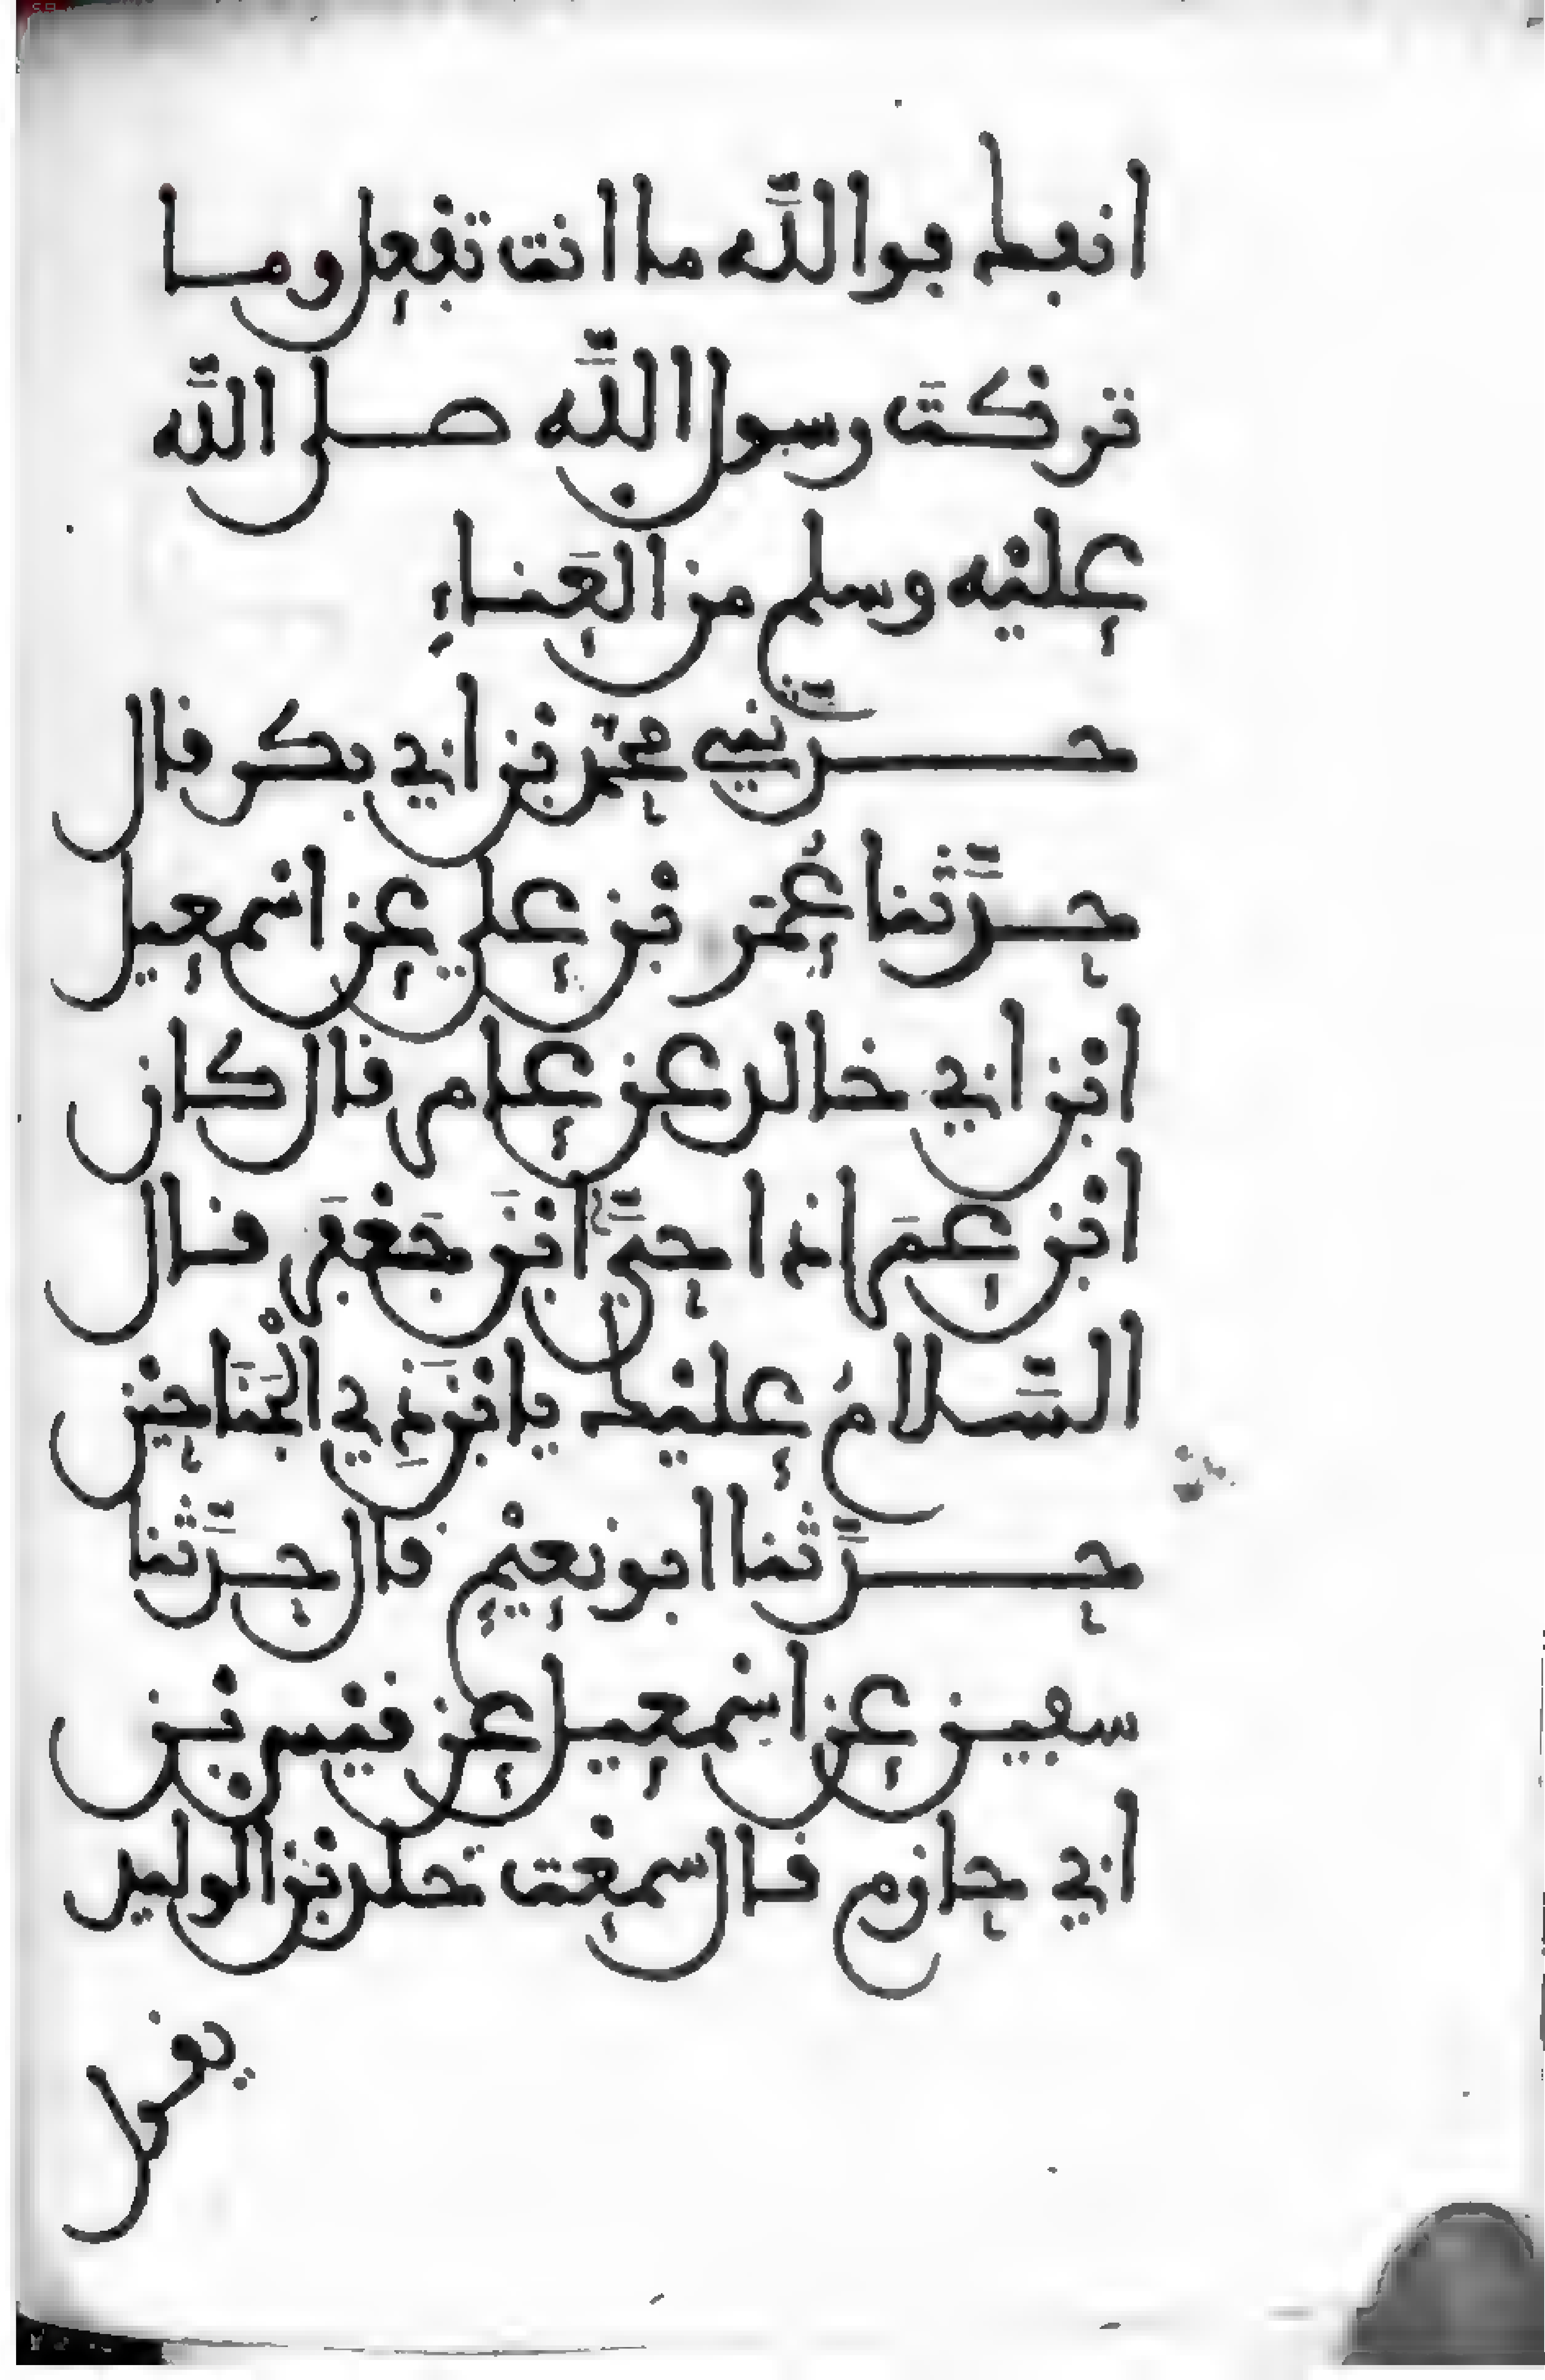 انفك فوالله ما انت تفعل وما
تركت رسول الله صلى الله
عليه وسلم من العناء
حدثني محمد بن ابي بكر قال
حدثنا عمر بن علي عن اسمعيل
ابن ابي خالد عن عامر قال كان
ابن عمر اذا حيى ابن جعفر قال
السلام عليك يا ابن ذي الجناحين
حدثنا ابو نعيم قال حدثنا
سفين عن اسمعيل عن قيس بن
ابي حازم قال سمعت خلد بن الوليد
يقول